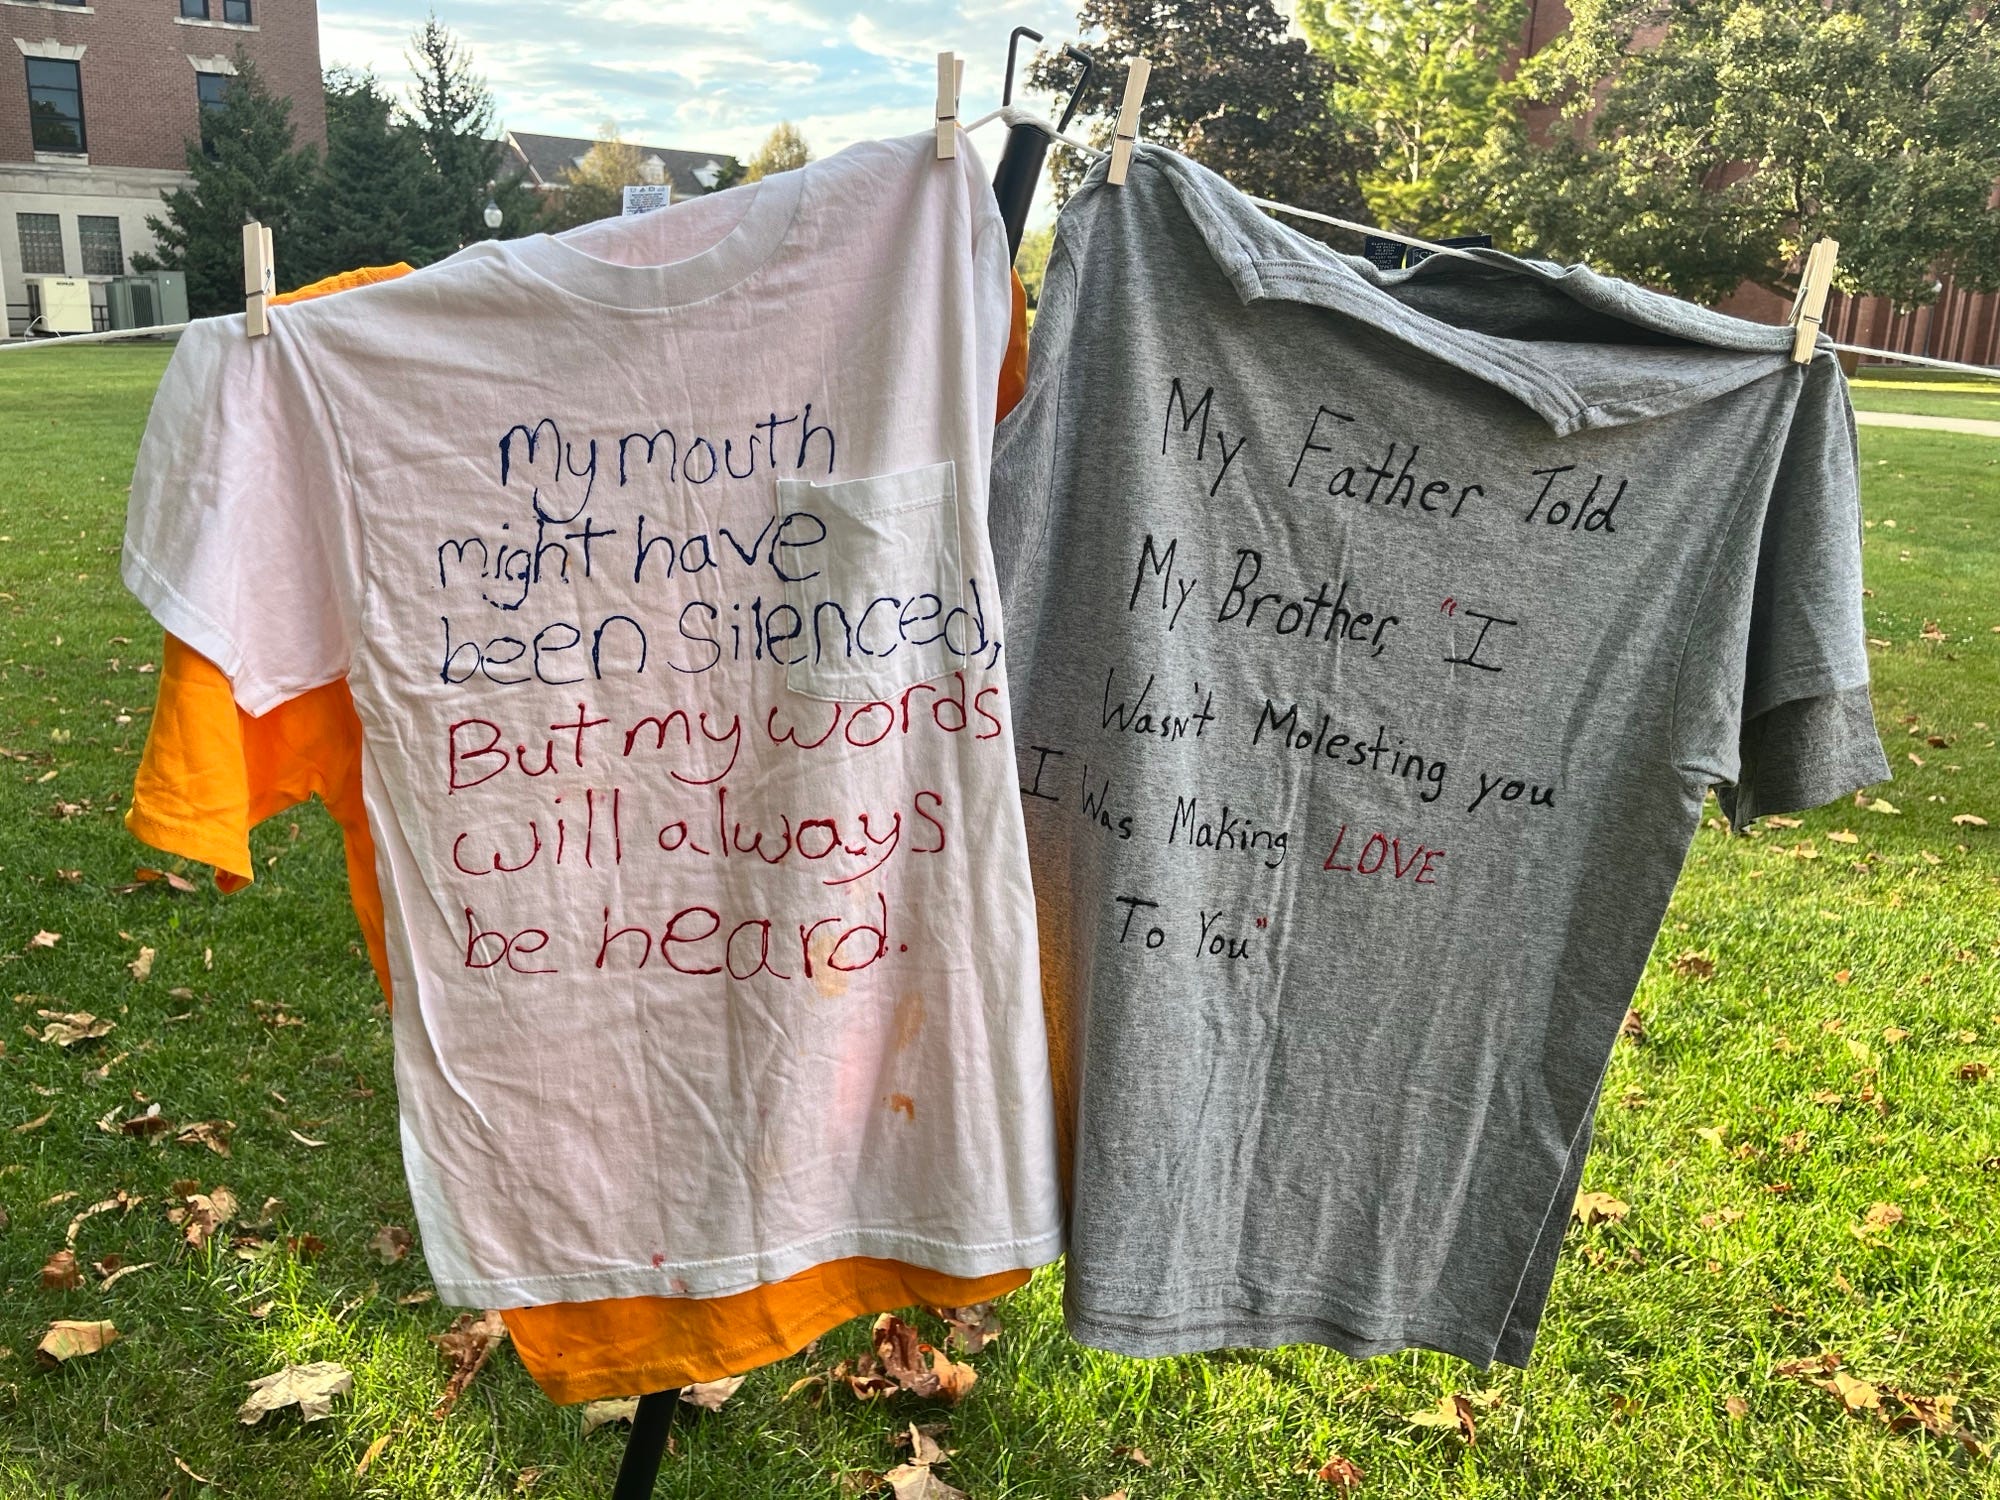 My mouth
might have
been Silenced,
But my words
will always
be heard.
My Father Told
My Brother, "I
Wasn't Molesting you
I Was Making LOVE
To You"